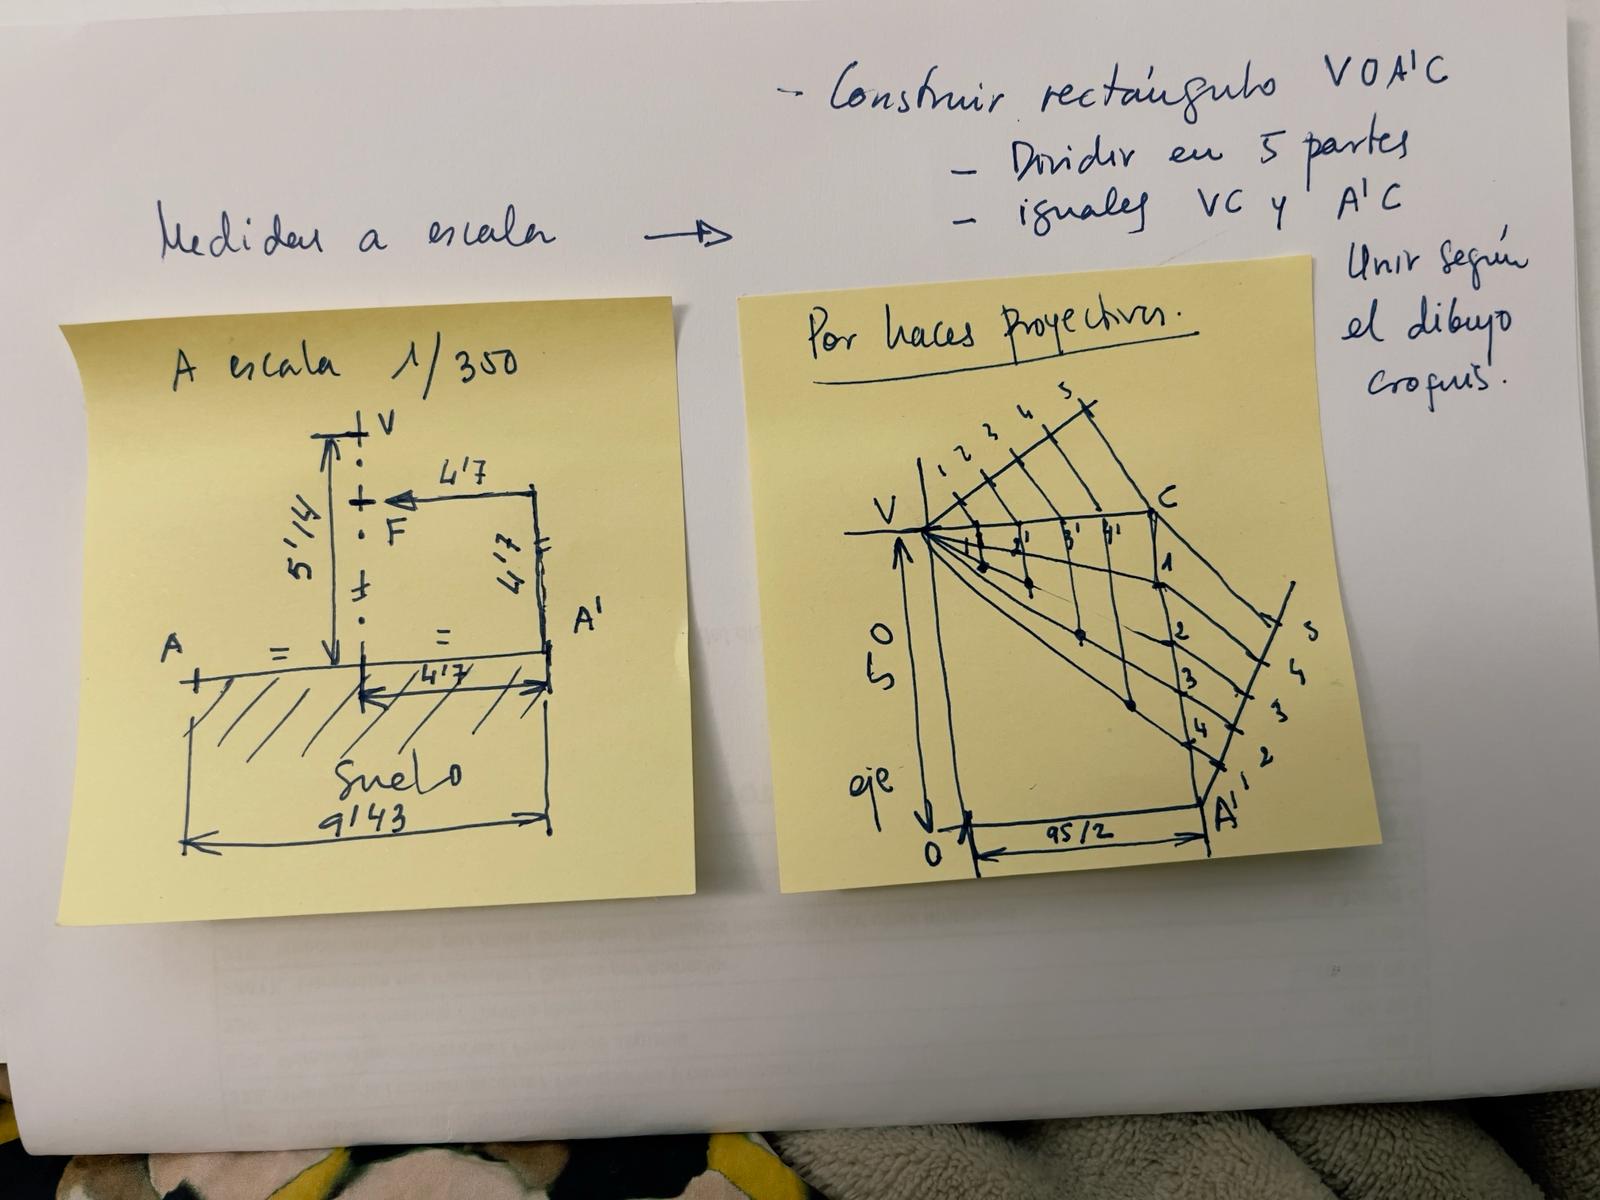 - Construir rectángulo VOA'C
- Dividir en 5 partes
- iguales VC y A'C
Unir según
el dibujo
croquis.
Medidas a escala →
A escala 1/350
V
4'7
F
5'14
4'7
A'
A
=
=
4'7
Suelo
9'43
Por haces proyectivos.
1 2 3 4 5
V
C
1' 2' 3' 4'
1
2
3
4
5
4
3
2
1
50
eje
A'
O
95/2